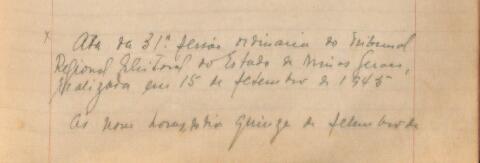 x Ata da 31ª sessão ordinaria do Tribunal
Regional Eleitoral do Estado de Minas Gerais,
realizada em 15 de setembro de 1945
As nove horas, do dia quinze de setembro de